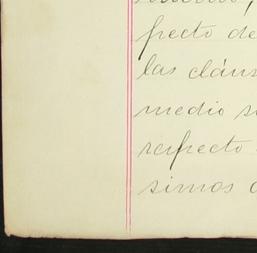 pecto de
las cláus
medio s
respecto
simos